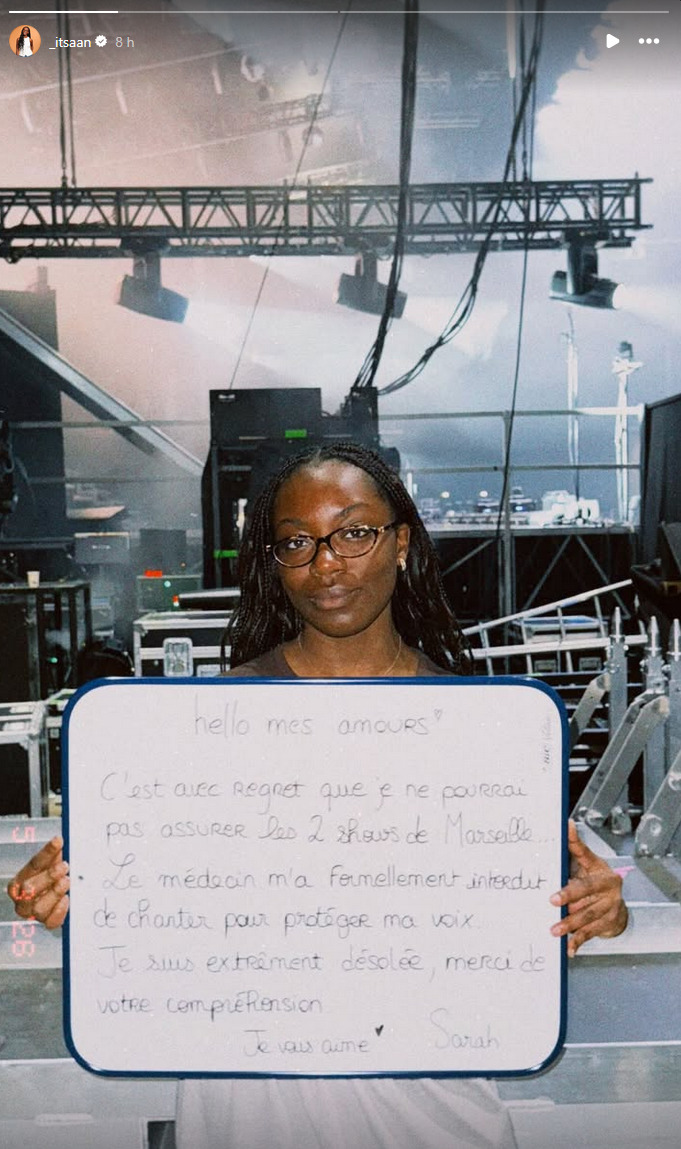 _itsaan 8 h
hello mes amours
C'est avec regret que je ne pourrai
pas assurer les 2 shows de Marseille...
Le médecin m'a formellement interdit
de chanter pour protéger ma voix.
Je suis extrêment désolée, merci de
votre compréhension
Je vous aime
Sarah